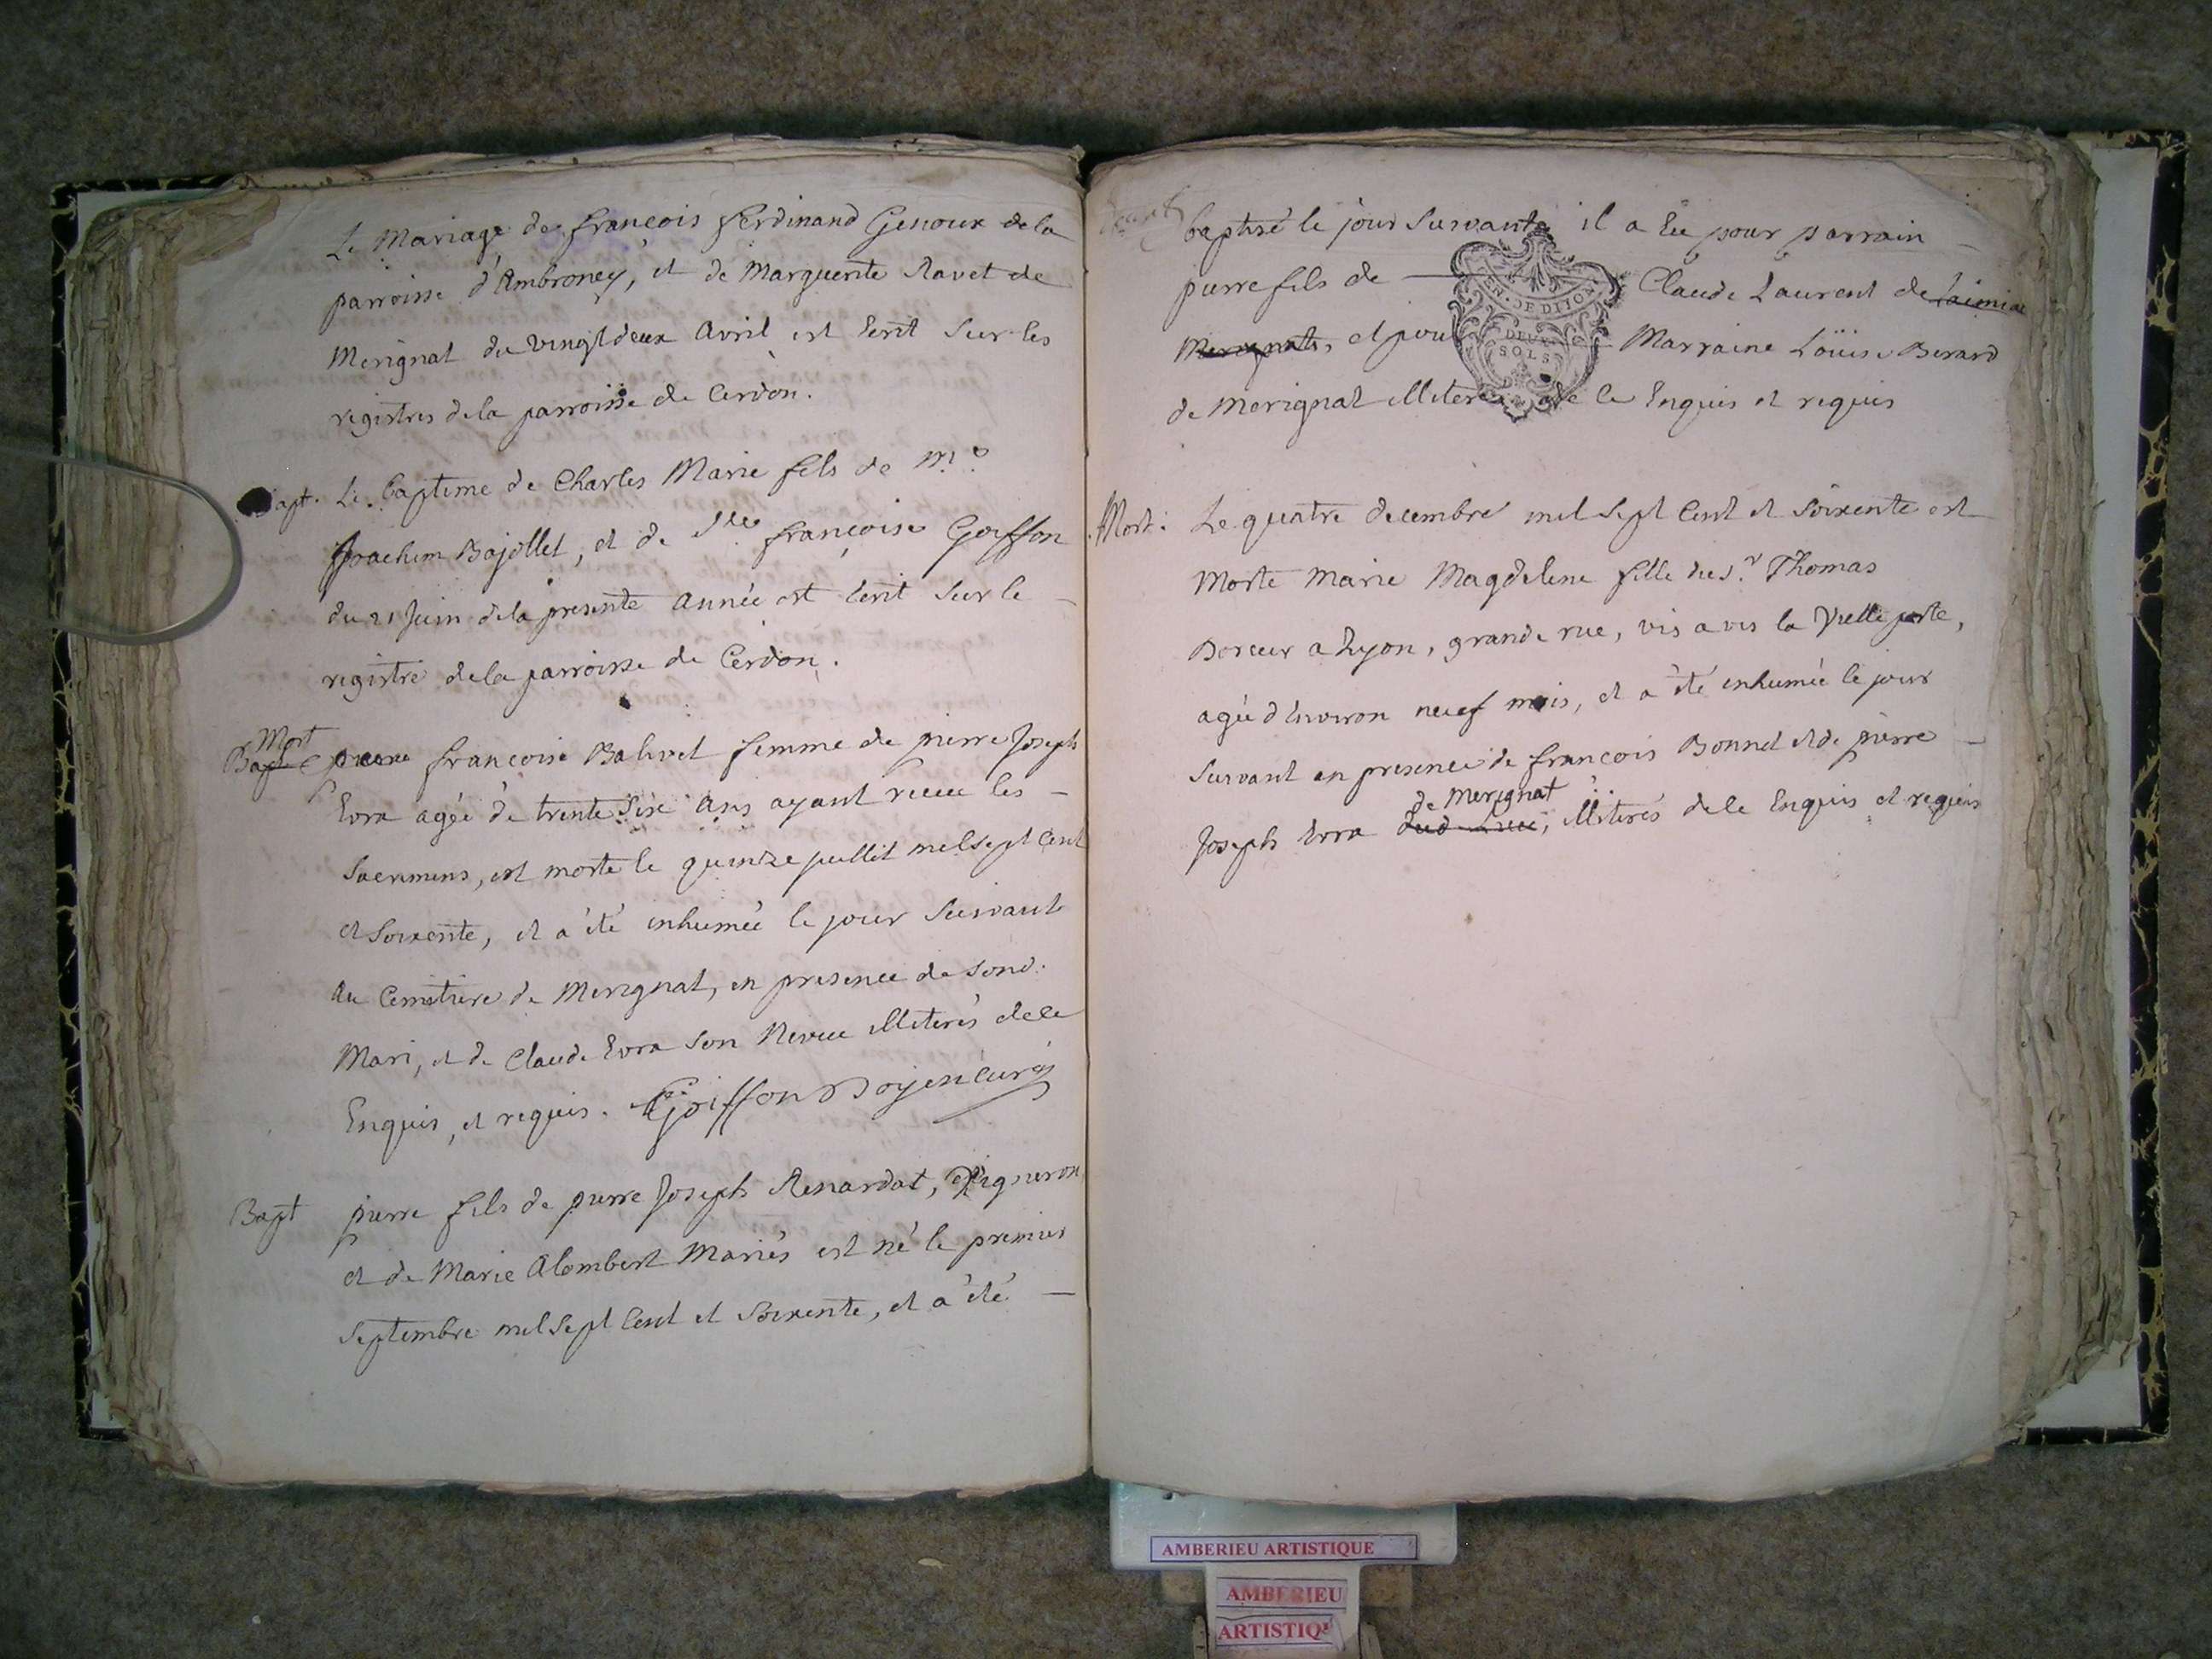 Le Mariage de françois ferdinand Genoux de la
parroisse d'Ambroney, et de Marguerite Ravet de
Merignat du vingt deux Avril est Ecrit sur les
registres de la parroisse de Cerdon.
Bapt. Le Baptême de Charles Marie fils de Me
Joachim Bajollet, et de Dlle françoise Goiffon
du 21 Juin de la presente Année est Ecrit Sur le
registre de la parroisse de Cerdon.
Mort
Bapt pierre françoise Balivet femme de pierre Joseph
Evra agée de trente Six Ans ayant receu les
Sacremens, est morte le quinze juillet mil sept Cent
et Soixente, et a été inhumée le jour Suivant
Au Cemetiere de Merignat, en presence de sond.
Mari, et de Claude Evra Son Neveu illiterés de ce
Enquis, et requis. Goiffon Doyen curé
Bapt pierre fils de pierre Joseph Renardat, Vigneron
et de Marie Alombert Mariés est né le premier
Septembre mil Sept Cent et Soixente, et a été
baptisé le jour Suivant, il a Eu pour parrain
pierre fils de Claude Laurent de
Merignat, et pour Marraine Loüise Berard
de Merignat illiterés de ce Enquis et requis
EN. DE DIJON
DEUX
SOLS
Mort. Le quatre decembre mil Sept Cent et Soixente est
Morte Marie Magdelene fille du Sr Thomas
a Lyon, grande rue, vis a vis la Vielle porte,
agée d'Environ neuf mois, et a été inhumée le jour
Suivant en presence de françois Bonnet et de pierre
de Merignat
Joseph Evra illiterés de ce Enquis et requis
AMBERIEU ARTISTIQUE
AMBERIEU
ARTISTIQ